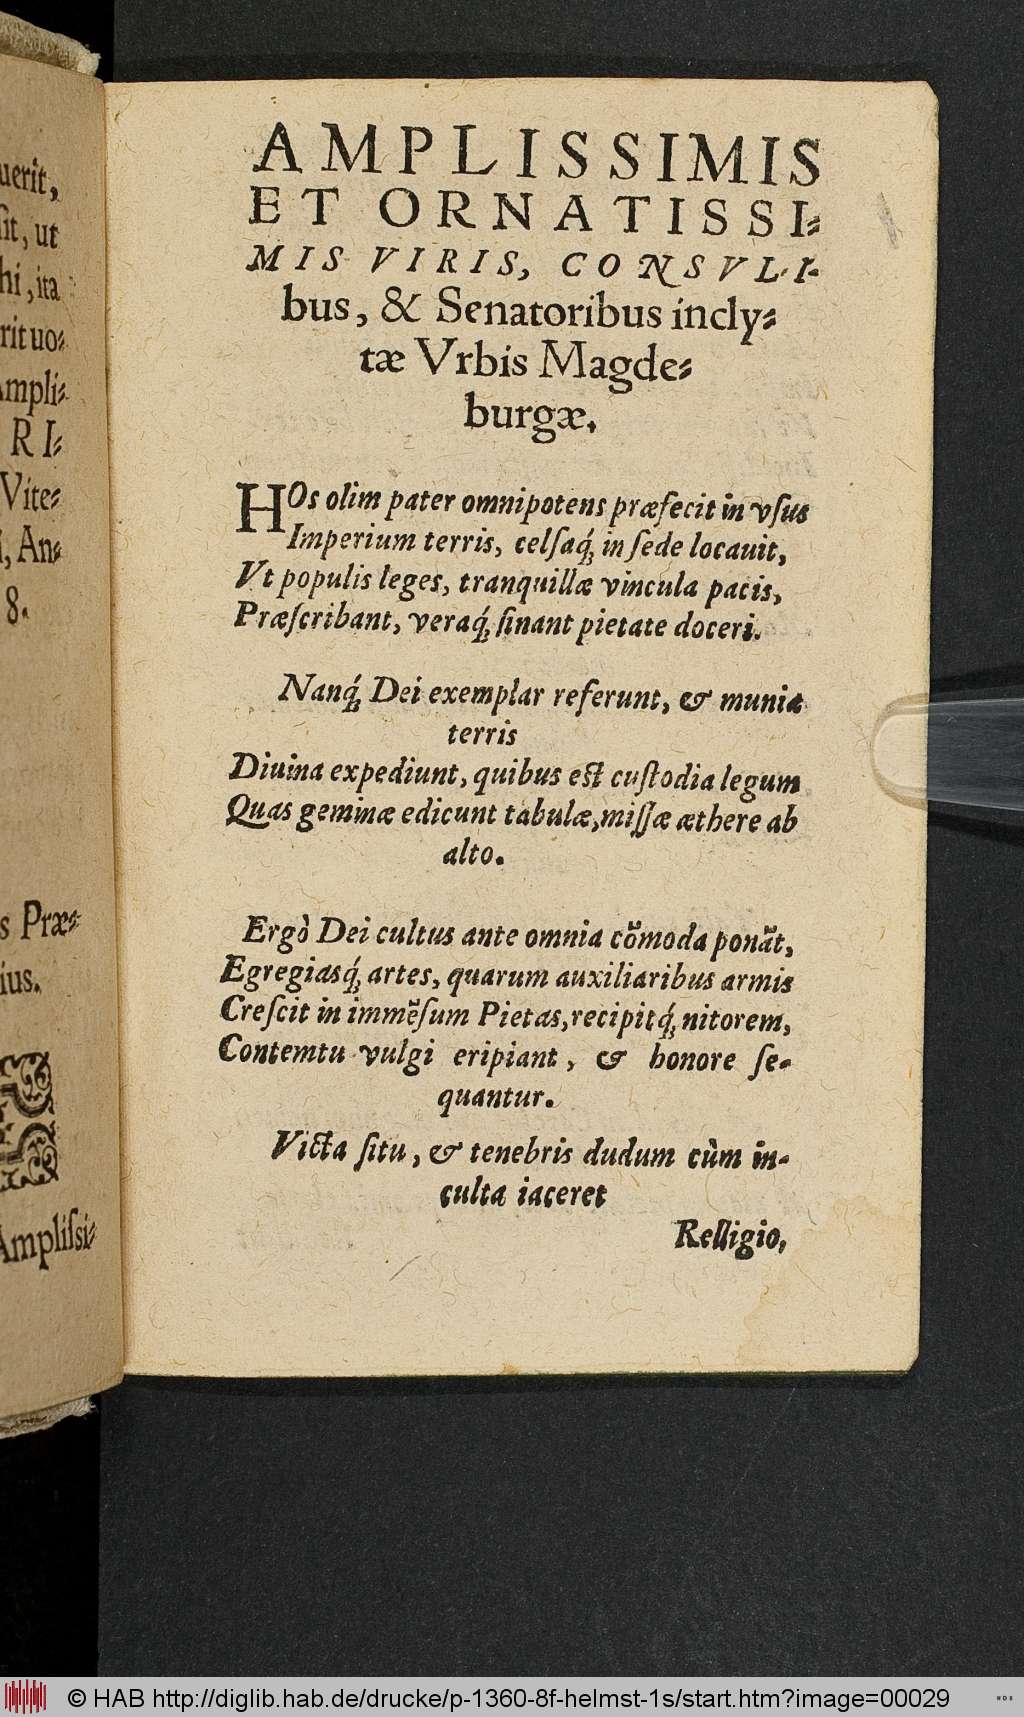 uerit,
sit, ut
hi, ita
rit uo⸗
Ampli⸗
RI⸗
Vite⸗
i, An⸗
8.
s Præ⸗
ius.
Ampliſsi⸗
AMPLISSIMIS
ET ORNATISSI⸗
MIS VIRIS, CONSVLI-
bus, & Senatoribus incly⸗
tæ Vrbis Magde⸗
burgæ.
HOs olim pater omnipotens præfecit in vſus
Imperium terris, celſaq́ꝫ in ſede locauit,
Vt populis leges, tranquillæ vincula pacis,
Præſcribant, veraq́ꝫ ſinant pietate doceri.
Nanq́ꝫ Dei exemplar referunt, & munia
terris
Diuina expediunt, quibus eſt cuſtodia legum
Quas geminæ edicunt tabulæ, miſſæ æthere ab
alto.
Ergò Dei cultus ante omnia cõmoda ponãt,
Egregiasq́ꝫ artes, quarum auxiliaribus armis
Creſcit in immẽſum Pietas, recipitq́ꝫ nitorem,
Contemtu vulgi eripiant, & honore ſe-
quantur.
Victa ſitu, & tenebris dudum cùm in-
culta iaceret
Relligio,
© HAB http://diglib.hab.de/drucke/p-1360-8f-helmst-1s/start.htm?image=00029